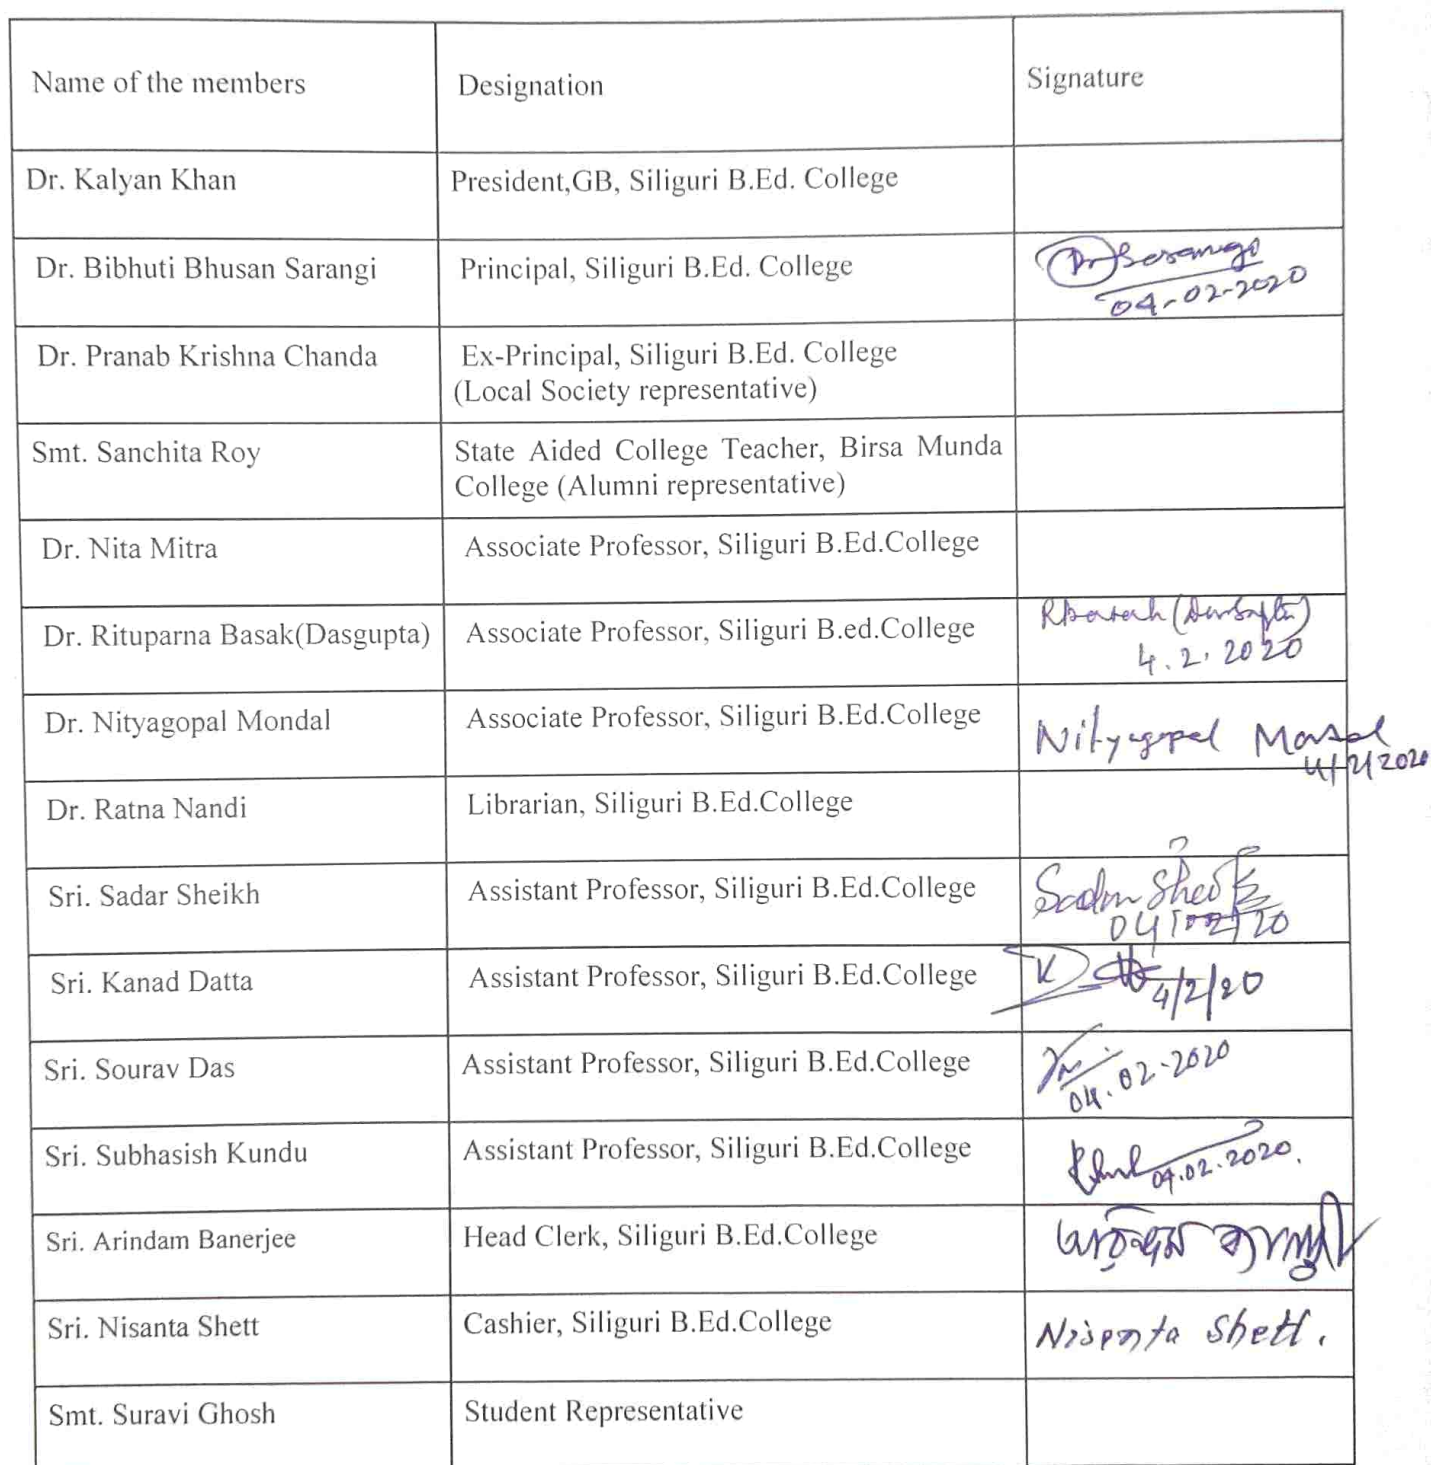 Name of the members Designation Signature
Dr. Kalyan Khan President,GB, Siliguri B.Ed. College
Dr. Bibhuti Bhusan Sarangi Principal, Siliguri B.Ed. College
04-02-2020
Dr. Pranab Krishna Chanda Ex-Principal, Siliguri B.Ed. College
(Local Society representative)
Smt. Sanchita Roy State Aided College Teacher, Birsa Munda
College (Alumni representative)
Dr. Nita Mitra Associate Professor, Siliguri B.Ed.College
Dr. Rituparna Basak(Dasgupta) Associate Professor, Siliguri B.ed.College RBasak (Dasgupta)
4.2.2020
Dr. Nityagopal Mondal Associate Professor, Siliguri B.Ed.College Nityagopal Mondal
4/2/2020
Dr. Ratna Nandi Librarian, Siliguri B.Ed.College
Sri. Sadar Sheikh Assistant Professor, Siliguri B.Ed.College Sadar Sheikh
04/02/20
Sri. Kanad Datta Assistant Professor, Siliguri B.Ed.College
4/2/20
Sri. Sourav Das Assistant Professor, Siliguri B.Ed.College
04.02-2020
Sri. Subhasish Kundu Assistant Professor, Siliguri B.Ed.College
04.02.2020.
Sri. Arindam Banerjee Head Clerk, Siliguri B.Ed.College অরিন্দম ব্যানার্জী
Sri. Nisanta Shett Cashier, Siliguri B.Ed.College Nisanta Shett.
Smt. Suravi Ghosh Student Representative